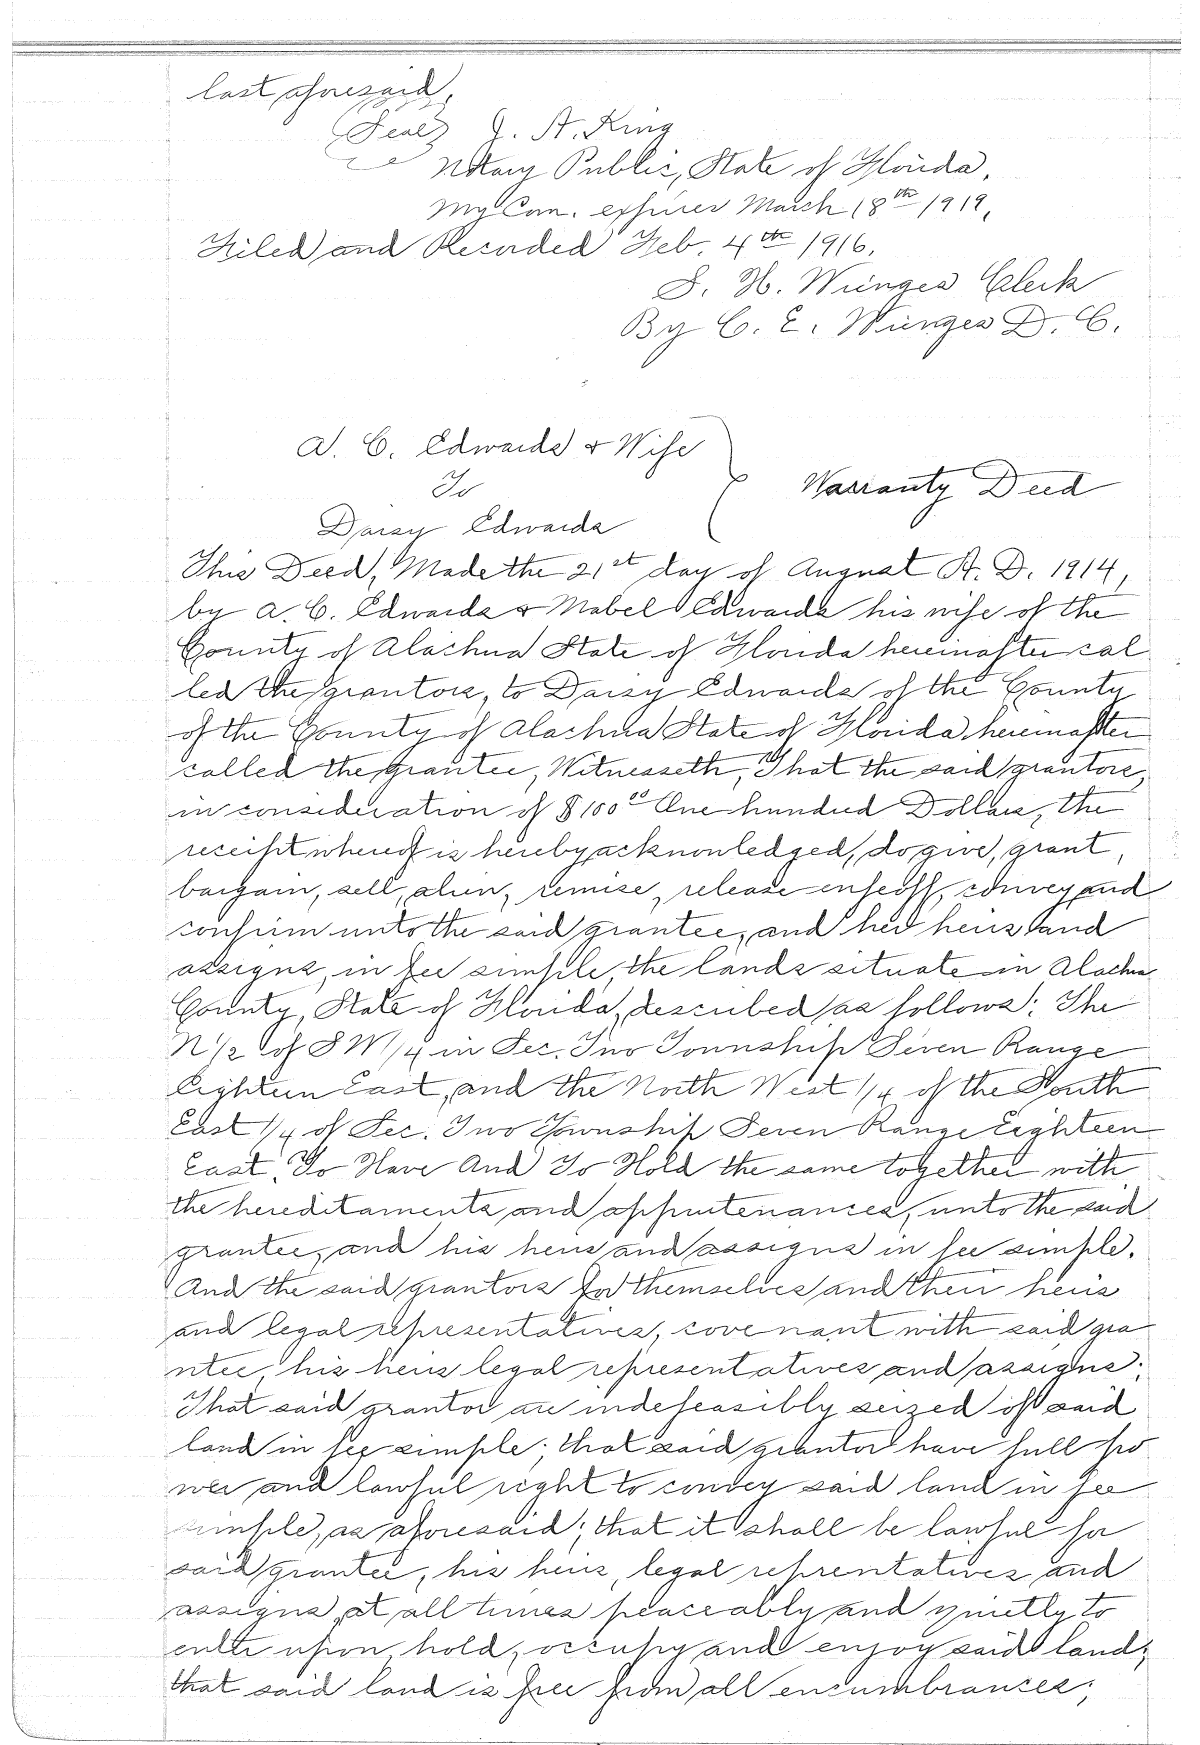 last aforesaid,
(Seal) J. A. King
Notary Public, State of Florida.
My Com. expires March 18th 1919.
Filed and Recorded Feb. 4th 1916.
S. H. Wienges Clerk
By C. E. Wienges D. C.
A. C. Edwards & Wife
To
Daisy Edwards
Warranty Deed
This Deed, Made the 21st day of August A. D. 1914,
by A. C. Edwards & Mabel Edwards his wife of the
County of Alachua State of Florida hereinafter cal
led the grantors, to Daisy Edwards of the County
of the County of Alachua State of Florida hereinafter
called the grantee, Witnesseth, That the said grantors,
in consideration of $100.00 One hundred Dollars, the
receipt whereof is hereby acknowledged, do give, grant,
bargain, sell, alien, remise, release enfeoff, convey and
confirm unto the said grantee, and her heirs and
assigns, in fee simple, the lands situate in Alachua
County, State of Florida, described as follows: The
N 1/2 of SW 1/4 in Sec. Two Township Seven Range
Eighteen East, and the North West 1/4 of the South
East 1/4 of Sec. Two Township Seven Range Eighteen
East. To Have And To Hold the same together with
the hereditaments and appurtenances, unto the said
grantee, and his heirs and assigns in fee simple.
And the said grantors for themselves and their heirs
and legal representatives, covenant with said gra
ntee, his heirs legal representatives and assigns;
That said grantor are indefeasibly seized of said
land in fee simple; that said grantor have full po
wer and lawful right to convey said land in fee
simple, as aforesaid; that it shall be lawful for
said grantee, his heirs, legal reprentatives and
assigns, at all times peaceably and quietly to
enter upon, hold, occupy and enjoy said land;
that said land is free from all encumbrances;